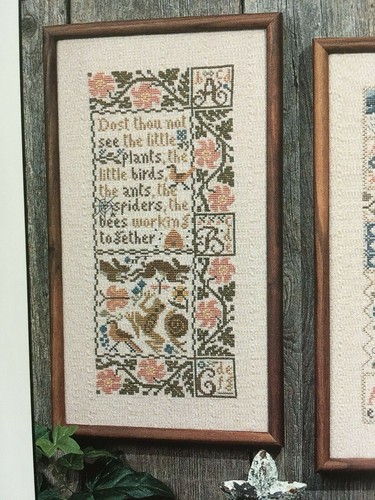 Dost thou not
see the little
plants, the
little birds,
the ants, the
spiders, the
bees working
together
A
B